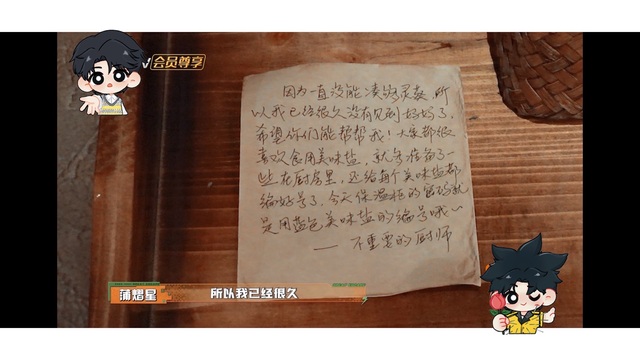 会员尊享
因为一直没能凑够灵菇,所
以我已经很久没有见到妈妈了,
希望你们能帮帮我!大家都很
喜欢食用美味盐,就多准备了一
些在厨房里,还给每个美味盐都
编好号了,今天保温柜的密码就
是用蓝色美味盐的编号哦~
——不重要的厨师
蒲熠星 所以我已经很久